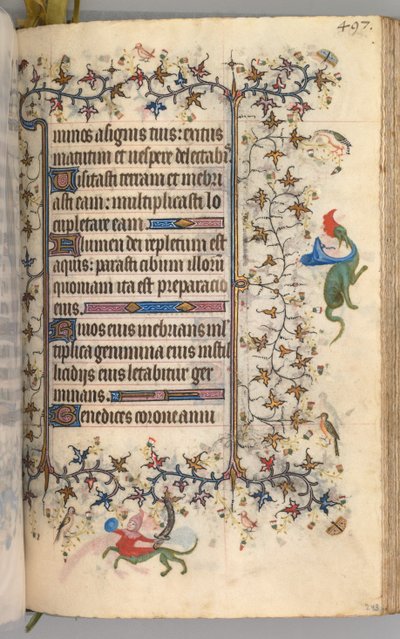 497.
minos a signis tuis: exitus
matutini et vespere delectabis
Visitasti terram et inebri
asti eam: multiplicasti lo
cupletare eam
Flumen dei repletum est
aquis: parasti cibum illorum
quoniam ita est preparacio
eius.
Rivos eius inebrians mul
tiplica genimina eius in stil
licidiis eius letabitur ger
minans.
Benedices corone anni
248